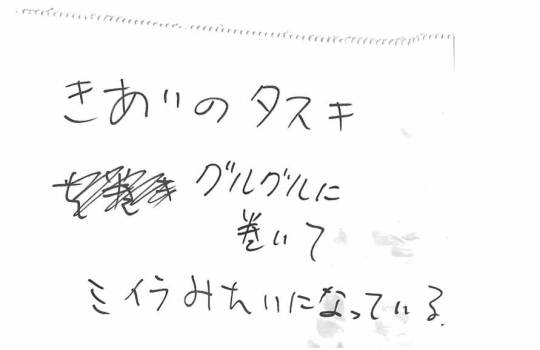 きあいのタスキ
グルグルに
巻いて
ミイラみたいになっている.